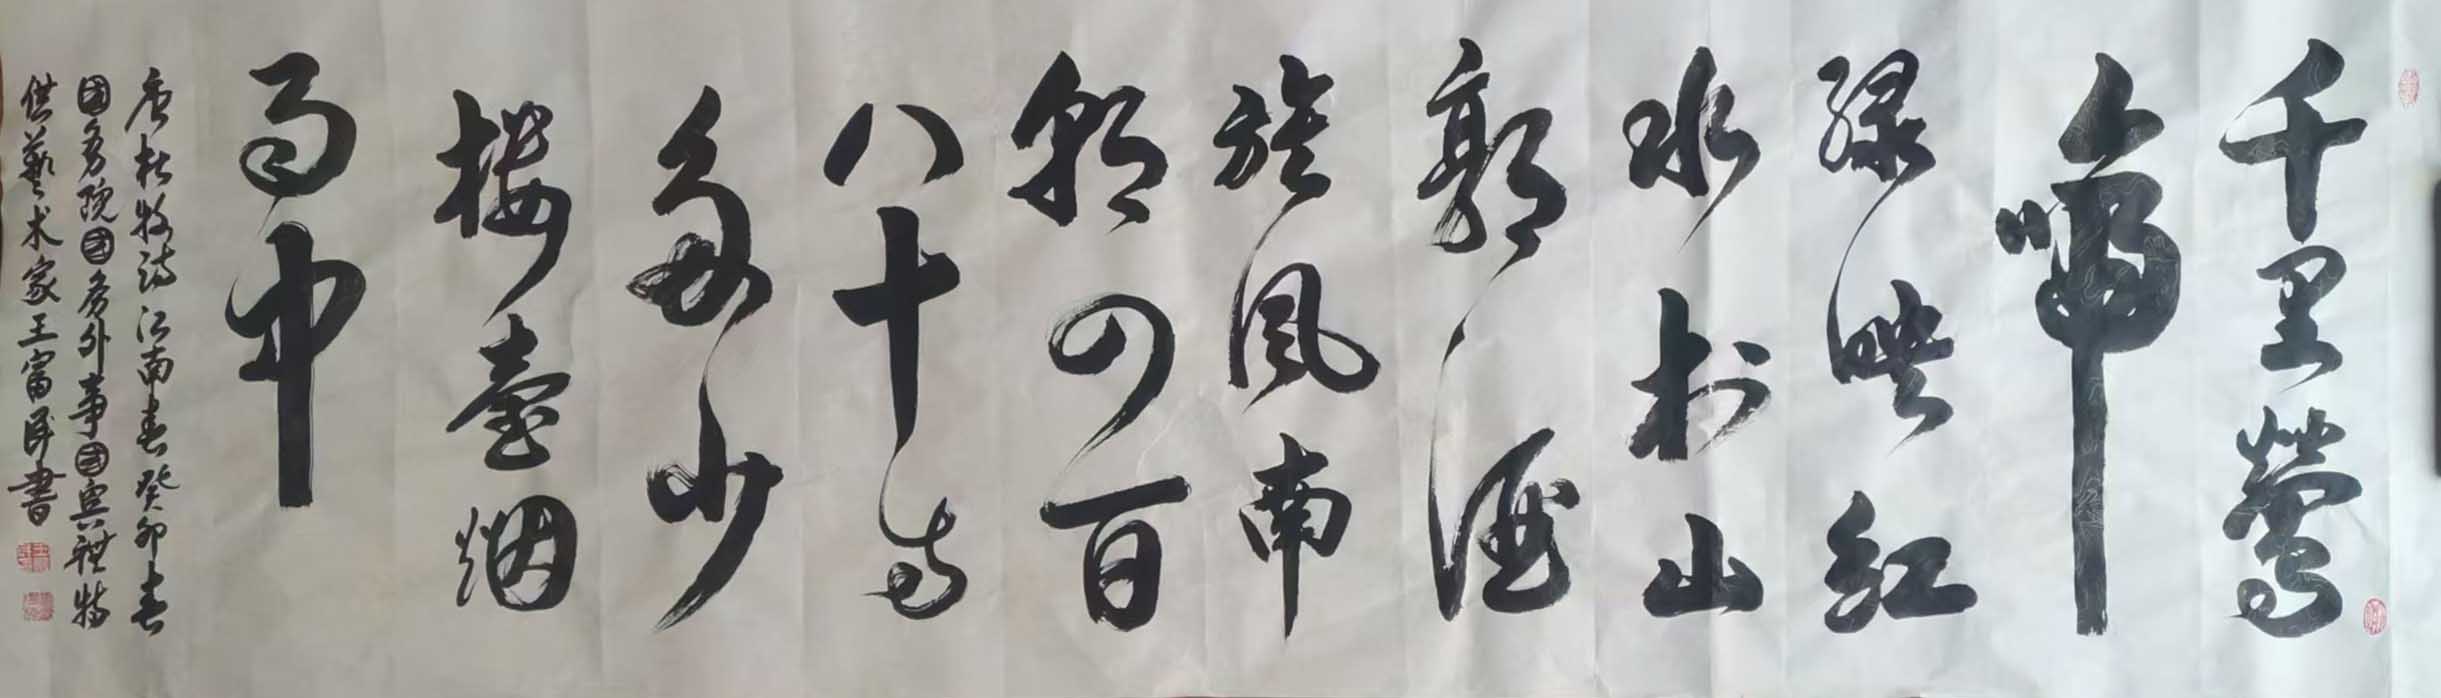 千里鶯
啼
绿映红
水村山
郭酒
旗风南
朝四百
八十寺
多少
楼臺烟
雨中
唐杜牧诗江南春癸卯春
國务院國务外事國宾礼特
供藝术家王富民書